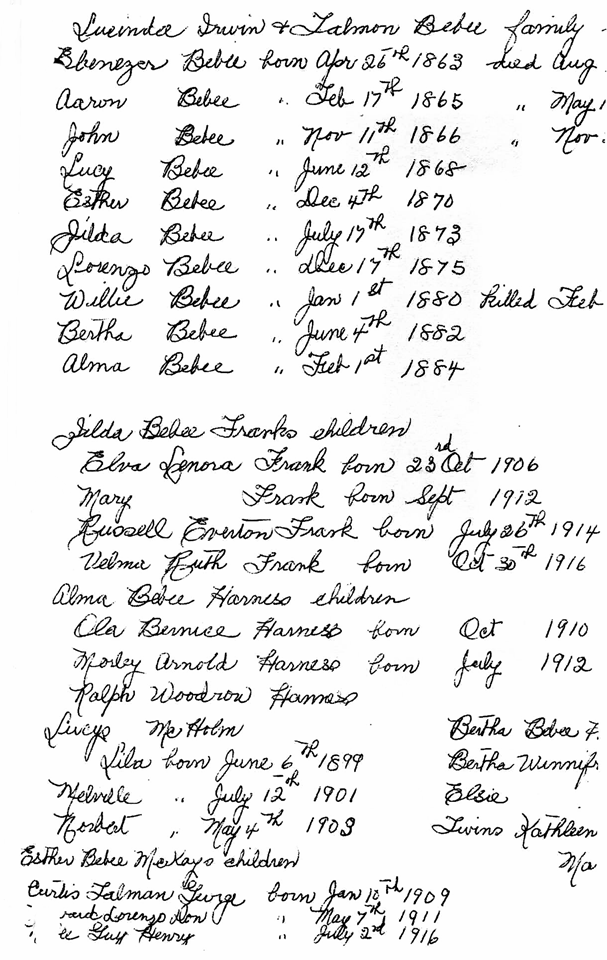 Lucinda Irwin & Talmon Bebee family
Ebenezer Bebee born Apr 26th 1863 died Aug
Aaron Bebee " Feb 17th 1865 " May 1
John Bebee " Nov 11th 1866 " Nov.
Lucy Bebee " June 12th 1868
Esther Bebee " Dec 4th 1870
Jilda Bebee " July 17th 1873
Lorenzo Bebee " Dec 17th 1875
Willie Bebee " Jan 1st 1880 killed Feb
Bertha Bebee " June 4th 1882
Alma Bebee " Feb 1st 1884
Jilda Bebee Franks children
Elva Lenora Frank born 23rd Oct 1906
Mary Frank born Sept 1912
Russell Everton Frank born July 26th 1914
Velma Ruth Frank born Oct 30th 1916
Alma Bebee Harness children
Ola Bernice Harness born Oct 1910
Morley Arnold Harness born July 1912
Ralph Woodrow Harness
Lucys McHolm Bertha Bebee F.
Lila born June 6th 1899 Bertha Winnifr
Melville " July 12th 1901 Elsie
Norbert " May 4th 1903 Twins Kathleen
Esther Bebee McKays children Ma
Curtis Talman George born Jan 10th 1909
Lorenzo Don " May 7th 1911
Guy Henry " July 2nd 1916